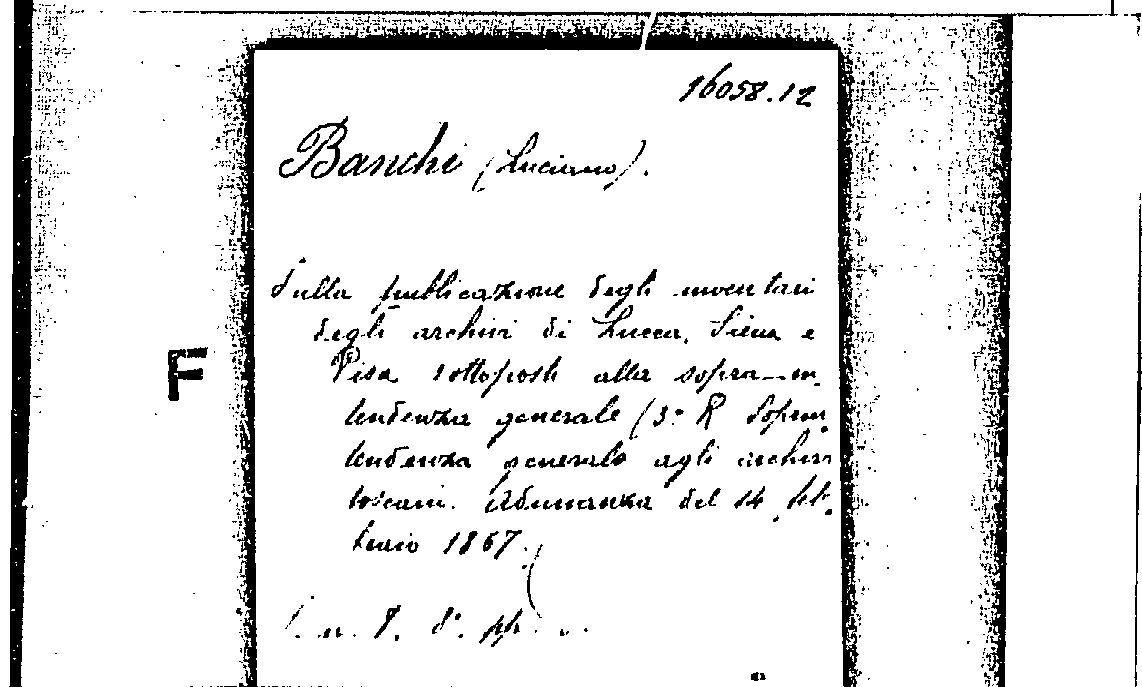 16058.12
Banchi (Luciano).
Sulla pubblicazione degli inventari
degli archivi di Lucca, Siena e
F
Pisa sottoposti alla sopra-in-
tendenza generale (3ª R Soprin-
tendenza generale agli archivi
toscani. Adunanza del 14 feb-
braio 1867.)
S. n. T. 8º. pp.